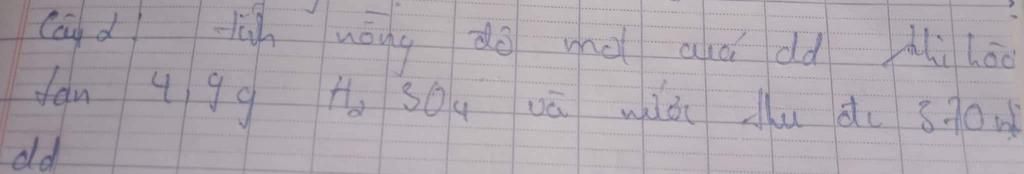 Câu 2: tính nồng độ mol của dd khi hoà
tan 4,9g H2SO4 và nước thu đc 370ml
dd